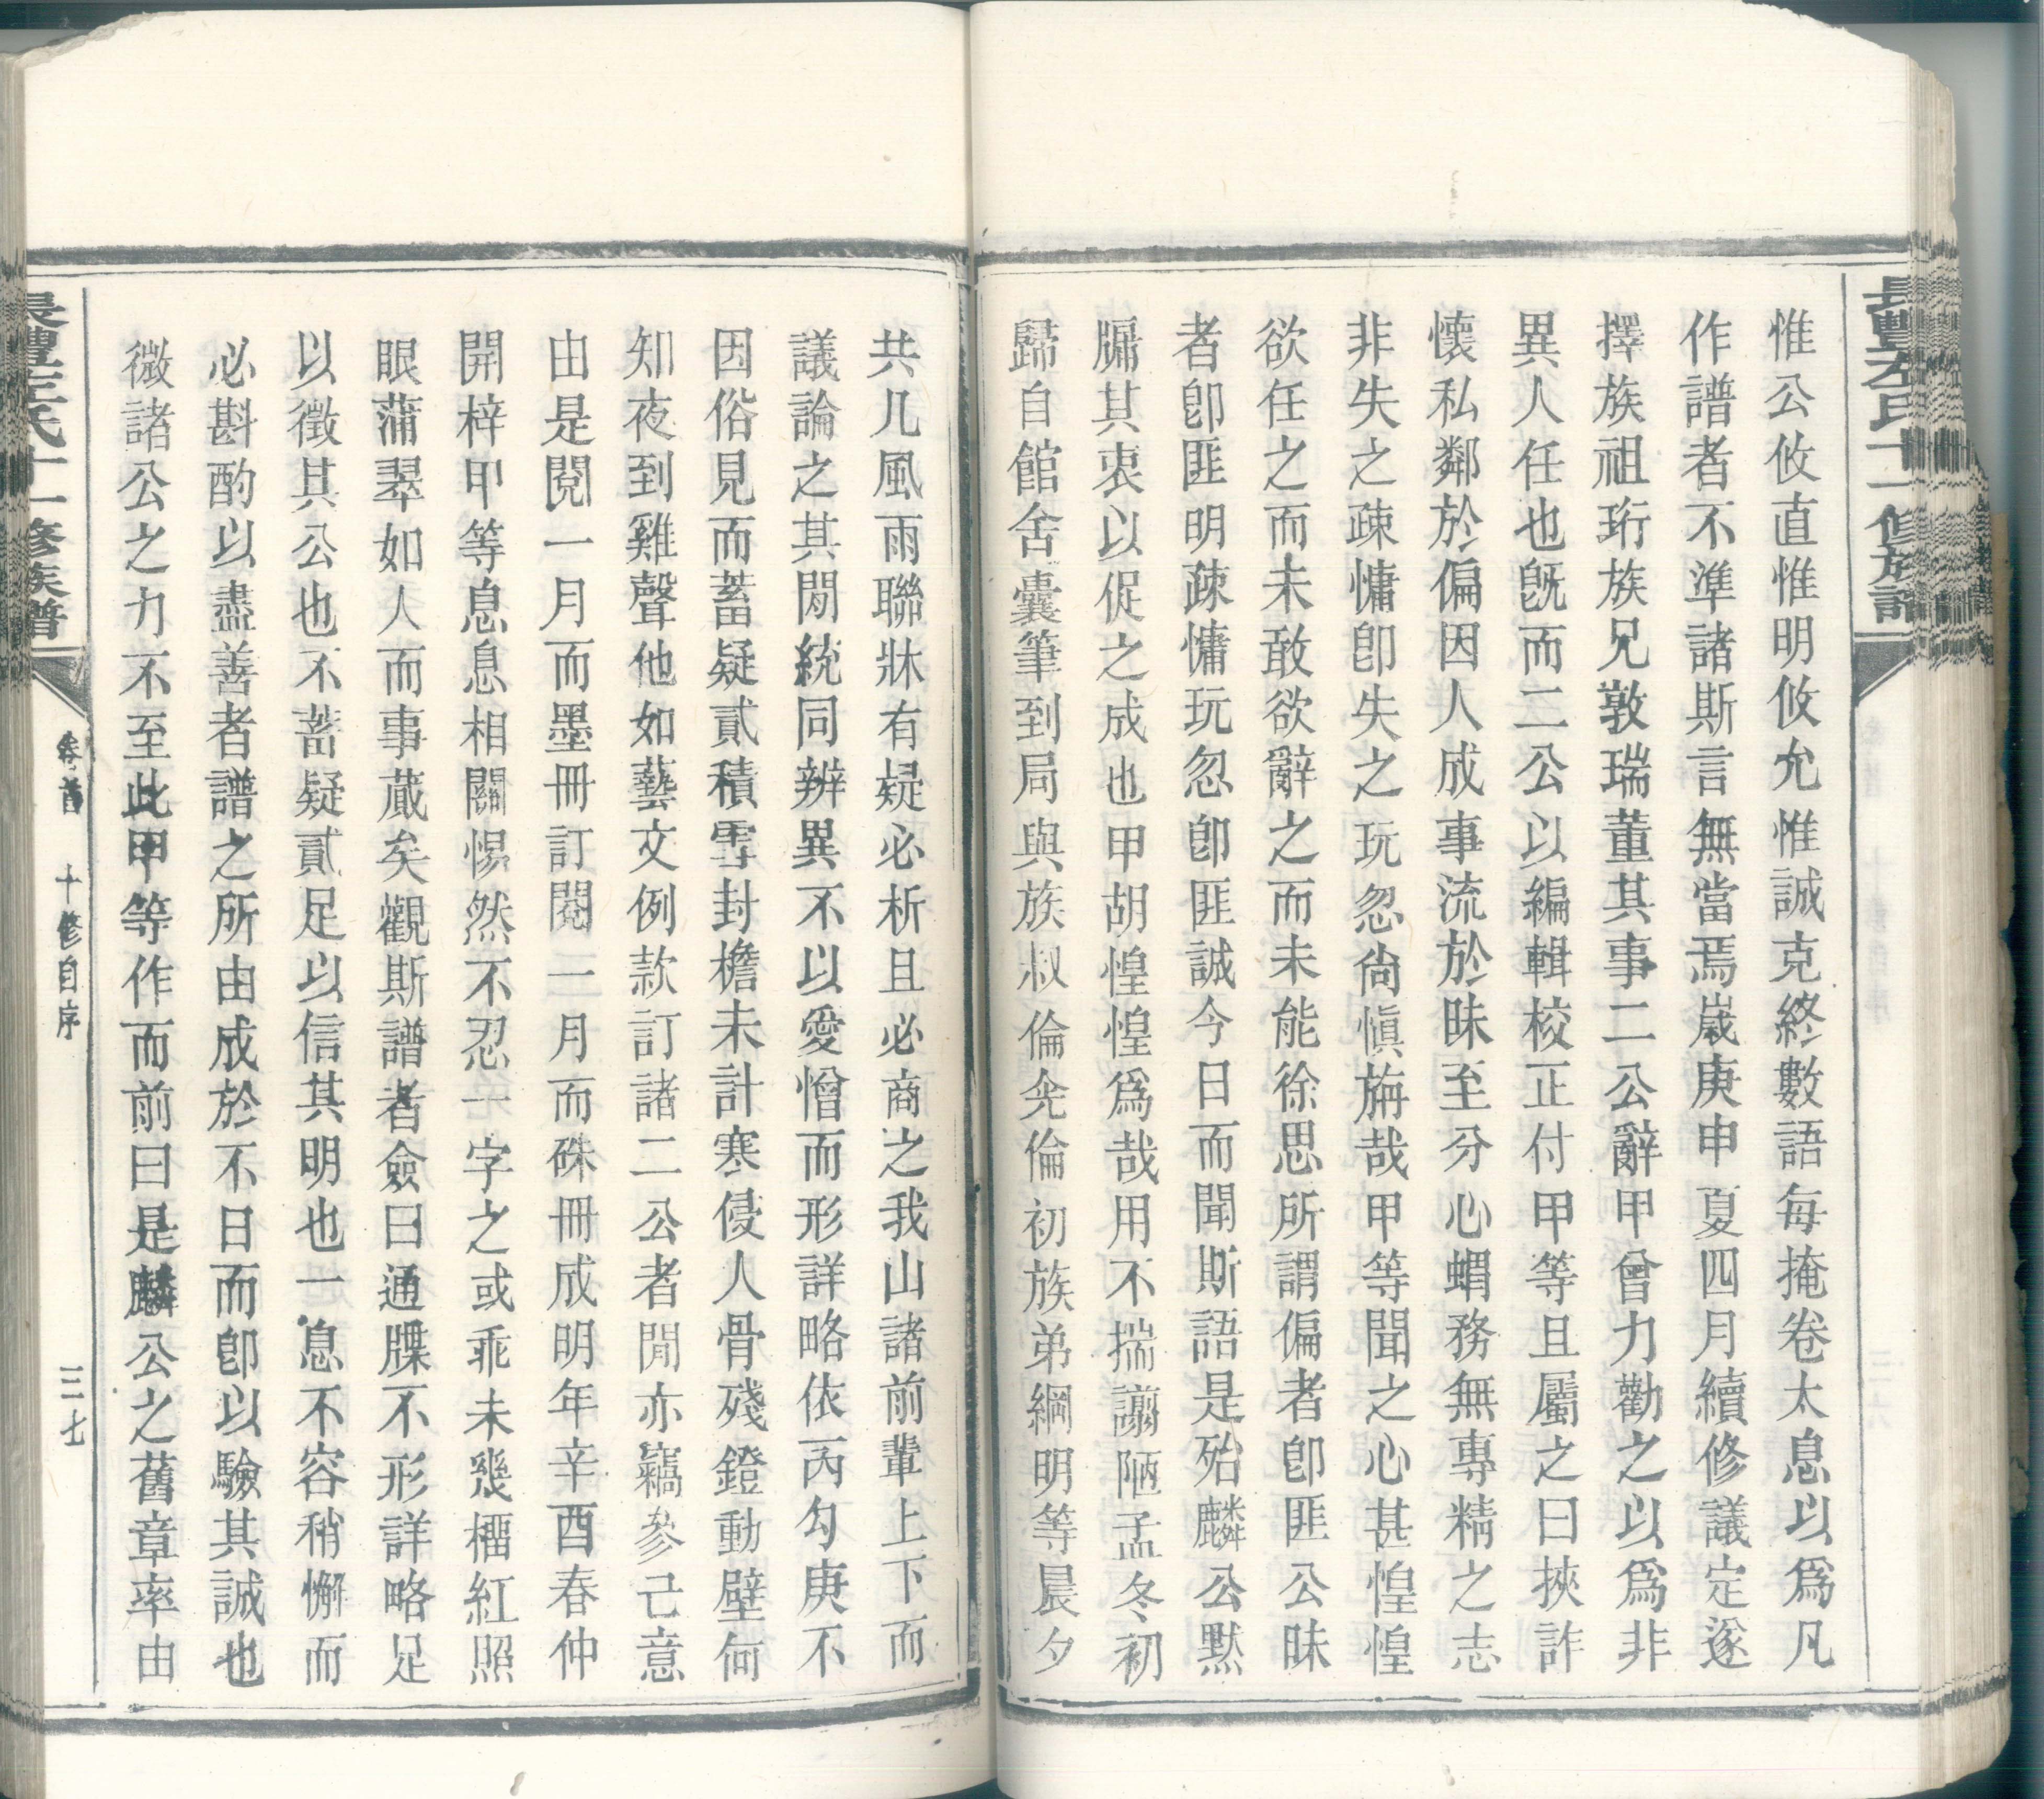 長豐左氏十一修族譜
惟公攸直惟明攸允惟誠克終數語每掩卷太息以爲凡
作譜者不準諸斯言無當焉歲庚申夏四月續修議定遂
擇族祖珩族兄敦瑞董其事二公辭甲曾力勸之以爲非
異人任也旣而二公以編輯校正付甲等且屬之曰挾詐
懷私鄰於偏因人成事流於昧至分心蝟務無專精之志
非失之疎慵卽失之玩忽尙愼旃哉甲等聞之心甚惶惶
欲任之而未敢欲辭之而未能徐思所謂偏者卽匪公昧
者卽匪明疎慵玩忽卽匪誠今日而聞斯語是殆麟公默
牖其衷以促之成也甲胡惶惶爲哉用不揣譾陋孟冬初
歸自館舍囊筆到局與族叔倫灮倫初族弟綱明等晨夕
共几風雨聯牀有疑必析且必商之我山諸前輩上下而
議論之其閒統同辨異不以愛憎而形詳略依丙勾庚不
因俗見而蓄疑貳積雪封檐未計寒侵人骨殘鐙動壁何
知夜到雞聲他如藝文例款訂諸二公者閒亦竊參己意
由是閱一月而墨冊訂閱二月而硃冊成明年辛酉春仲
開梓甲等息息相關惕然不忍一字之或乖未幾榴紅照
眼蒲翠如人而事蕆矣觀斯譜者僉曰通牒不形詳略足
以徵其公也不蓄疑貳足以信其明也一息不容稍懈而
必斟酌以盡善者譜之所由成於不日而卽以驗其誠也
微諸公之力不至此甲等作而前曰是麟公之舊章率由
長豐左氏十一修族譜
卷首 十修自序 三七